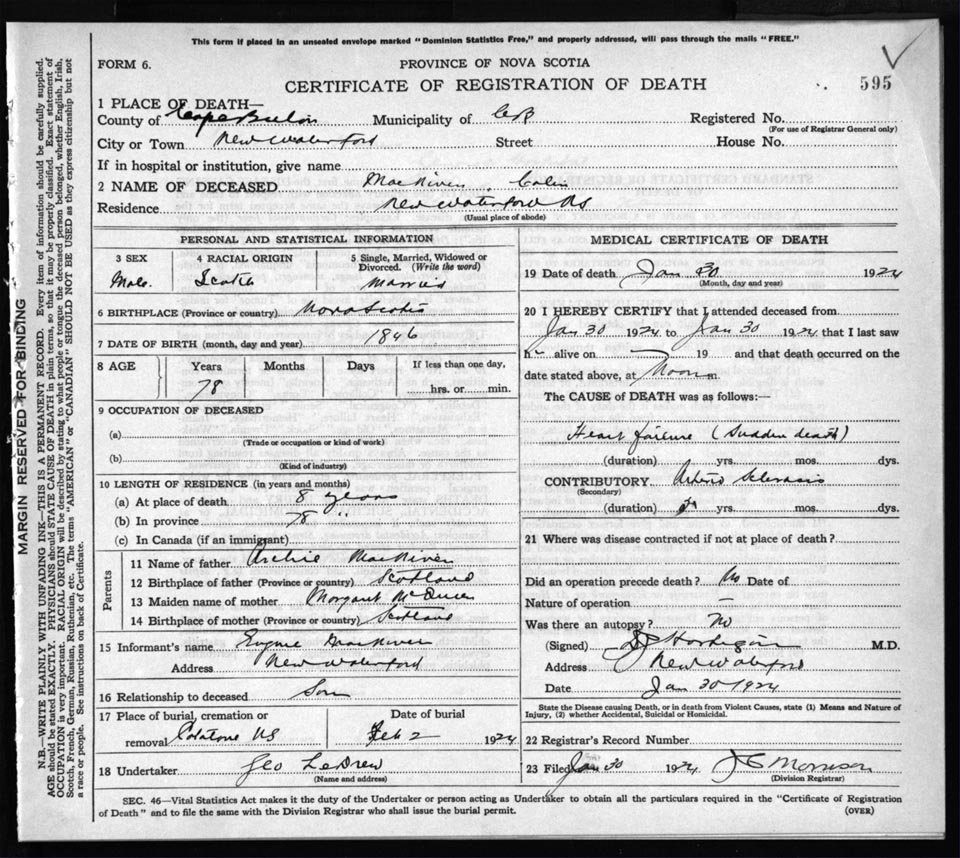 This form if placed in an unsealed envelope marked "Dominion Statistics Free," and properly addressed, will pass through the mails "FREE."
FORM 6.
PROVINCE OF NOVA SCOTIA
CERTIFICATE OF REGISTRATION OF DEATH
595
1 PLACE OF DEATH—
County of Cape Breton Municipality of CB Registered No.
(For use of Registrar General only)
City or Town New Waterford Street House No.
If in hospital or institution, give name
2 NAME OF DECEASED MacNiven, Colin
Residence New Waterford NS
(Usual place of abode)
PERSONAL AND STATISTICAL INFORMATION
3 SEX 4 RACIAL ORIGIN 5 Single, Married, Widowed or
Divorced. (Write the word)
Male. Scotch Married
6 BIRTHPLACE (Province or country) Nova Scotia
7 DATE OF BIRTH (month, day and year) 1846
8 AGE Years Months Days If less than one day,
78 hrs. or min.
9 OCCUPATION OF DECEASED
(a)
(Trade or occupation or kind of work)
(b)
(Kind of industry)
10 LENGTH OF RESIDENCE (in years and months)
(a) At place of death 8 years
(b) In province 78 "
(c) In Canada (if an immigrant)
Parents
11 Name of father Archie MacNiven
12 Birthplace of father (Province or country) Scotland
13 Maiden name of mother Margaret
14 Birthplace of mother (Province or country) Scotland
15 Informant's name Eugene MacNiven
Address New Waterford
16 Relationship to deceased Son
17 Place of burial, cremation or Date of burial
removal NS Feb 2 1924
18 Undertaker Geo LeDrew
(Name and address)
MEDICAL CERTIFICATE OF DEATH
19 Date of death Jan 30 1924
(Month, day and year)
20 I HEREBY CERTIFY that I attended deceased from
Jan 30 1924 to Jan 30 1924 that I last saw
h alive on 19 and that death occurred on the
date stated above, at Noon m.
The CAUSE of DEATH was as follows:—
Heart failure (Sudden death)
(duration) yrs. mos. dys.
CONTRIBUTORY Arterio Sclerosis
(Secondary)
(duration) yrs. mos. dys.
21 Where was disease contracted if not at place of death?
Did an operation precede death? No Date of
Nature of operation —
Was there an autopsy? No
(Signed) M.D.
Address New Waterford
Date Jan 30 1924
State the Disease causing Death, or in death from Violent Causes, state (1) Means and Nature of
Injury, (2) whether Accidental, Suicidal or Homicidal.
22 Registrar's Record Number
23 Filed Jan 30 1924 J C Morrison
(Division Registrar)
SEC. 46—Vital Statistics Act makes it the duty of the Undertaker or person acting as Undertaker to obtain all the particulars required in the "Certificate of Registration
of Death" and to file the same with the Division Registrar who shall issue the burial permit.
(OVER)
MARGIN RESERVED FOR BINDING
N.B.—WRITE PLAINLY WITH UNFADING INK—THIS IS A PERMANENT RECORD. Every item of information should be carefully supplied.
AGE should be stated EXACTLY. PHYSICIANS should STATE CAUSE OF DEATH in plain terms, so that it may be properly classified. Exact statement of
OCCUPATION is very important. RACIAL ORIGIN will be described by stating to what people or tongue the deceased person belonged, whether English, Irish,
Scotch, French, German, Russian, Ruthenian, etc. The terms "AMERICAN" or "CANADIAN" SHOULD NOT BE USED as they express citizenship but not
a race or people. See instructions on back of Certificate.